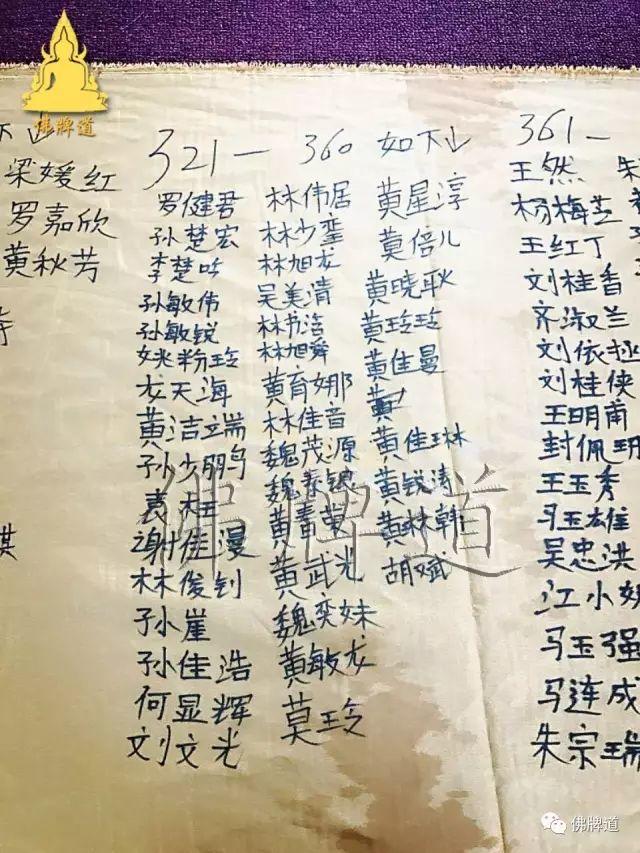 佛牌道
下↓
梁媛红
罗嘉欣
黄秋芳
321— 360 如下↓
罗健君
孙楚宏
李楚吟
孙敏伟
孙敏锐
姚粉玲
龙天海
黄洁端
孙少鹏
袁桂
谢佳漫
林俊钊
孙小崖
孙佳浩
何显辉
刘文光
林伟居
林少銮
林旭龙
吴美清
林书浩
林旭舜
黄育娜
林佳音
魏茂源
魏泰锒
黄武光
魏奕妹
黄敏龙
莫玲
黄星淳
莫倍儿
黄晓耿
黄玲玲
黄佳曼
黄
黄佳琳
黄锐涛
黄林韩
胡斌
361—
王然
杨梅芝
王红丁
刘桂香
齐淑兰
刘依
刘桂侠
王明甫
封佩玥
王玉秀
马玉雄
吴忠洪
江小
马玉强
马连成
朱宗瑞
朱
淇
佛牌道
佛牌道